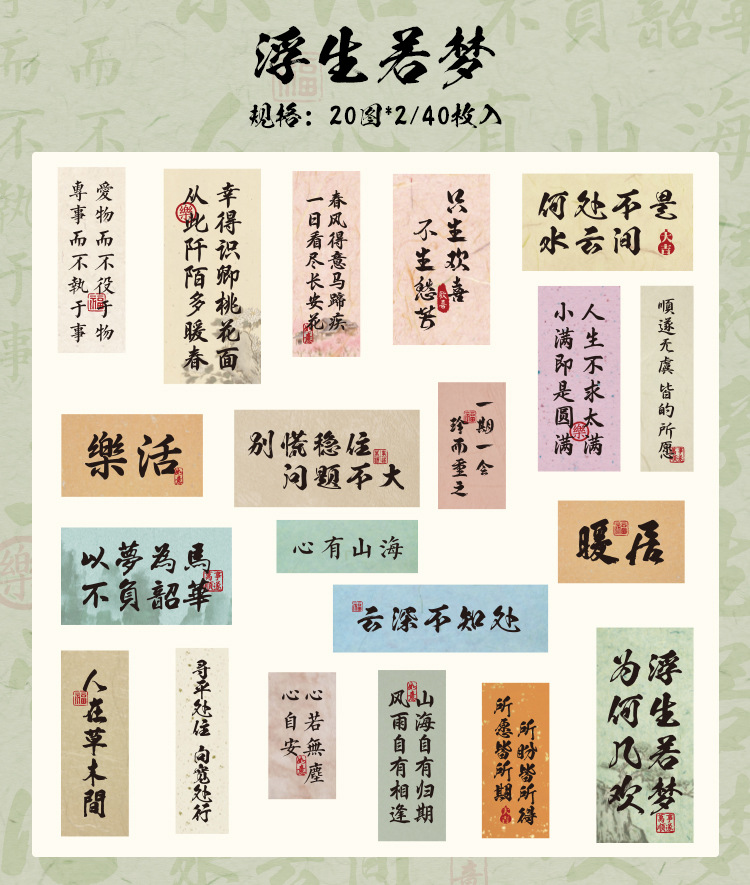 浮生若梦
规格：20图*2/40枚入
愛物而不役于物
專事而不執于事
福
幸得识卿桃花面
从此阡陌多暖春
樂
春风得意马蹄疾
一日看尽长安花
如意
只生欢喜
不生愁苦
欢喜
何处不是
水云间
大吉
人生不求太满
小满即是圆满
樂
順遂无虞 皆的所愿
樂活
如意
别慌稳住
问题不大
一期一会
珍而重之
福
以夢為馬
不負韶華
心有山海
暖居
福
云深不知处
福
人在草木間
福
寻平处住 向宽处行
心若無塵
心自安
如意
山海自有归期
风雨自有相逢
如意
所盼皆所得
所愿皆所期
大吉
浮生若梦
为何几欢